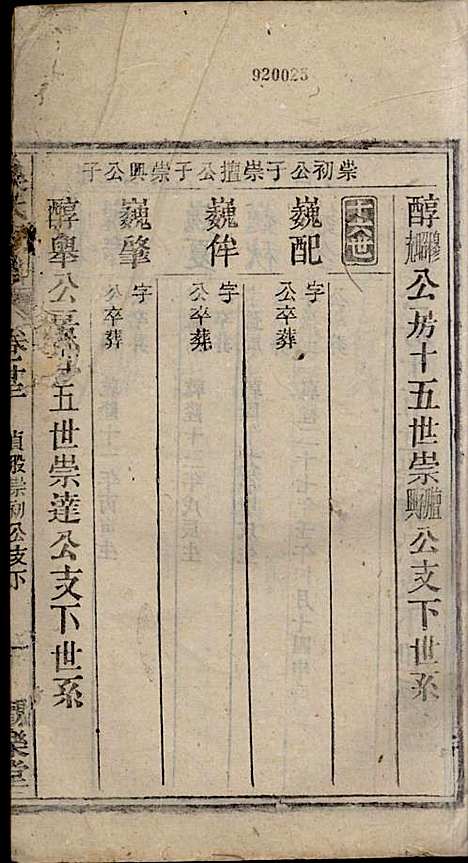 920023
崇初公子崇擅公子崇興公子
醇 公房十五世崇 公支下世系
十六世
巍配
字
公卒葬
巍侔
字
公卒葬
巍肇
字
公卒葬
醇舉公房十五世崇達公支下世系
貞股崇初公支下